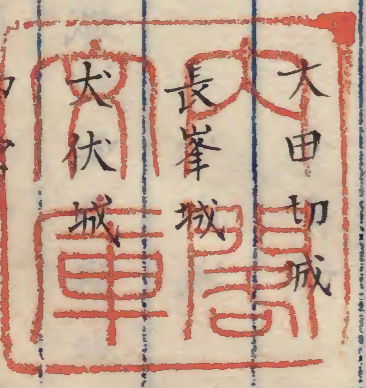 大田切城
長峯城
犬伏城